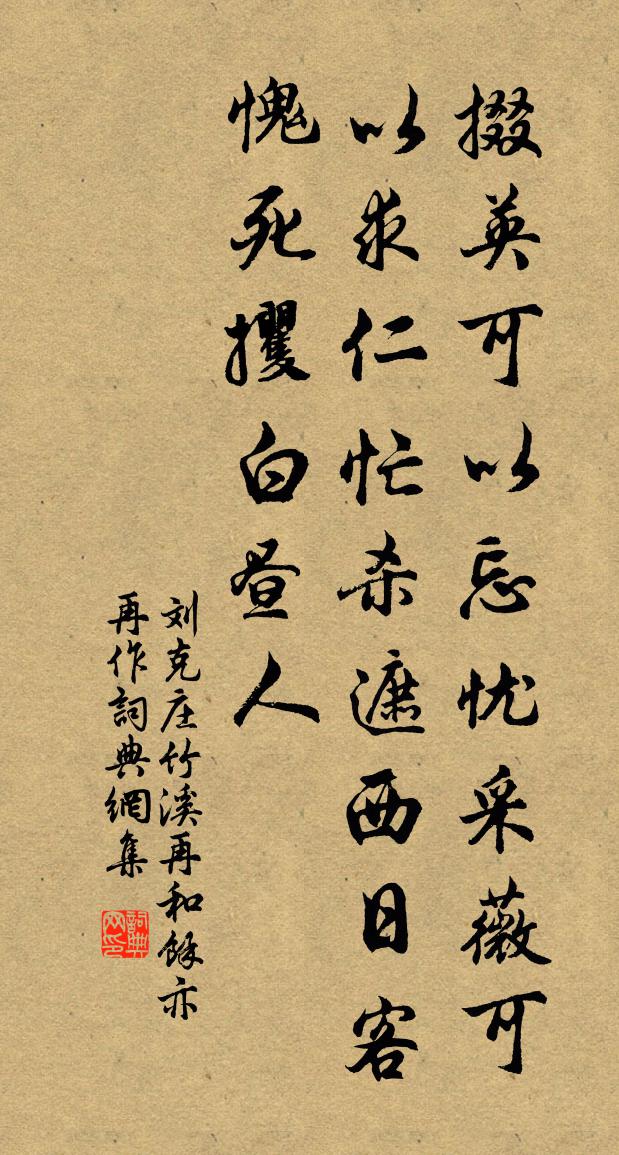 掇英可以忘忧采薇可
以求仁忙杀遮西日客
愧死攫白昼人
刘克庄竹溪再和馀亦
再作詞典網集
詞典网印